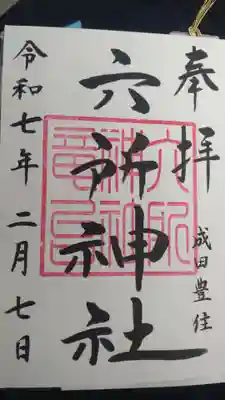 奉拝
成田豊住
六所神社
令和七年二月七日